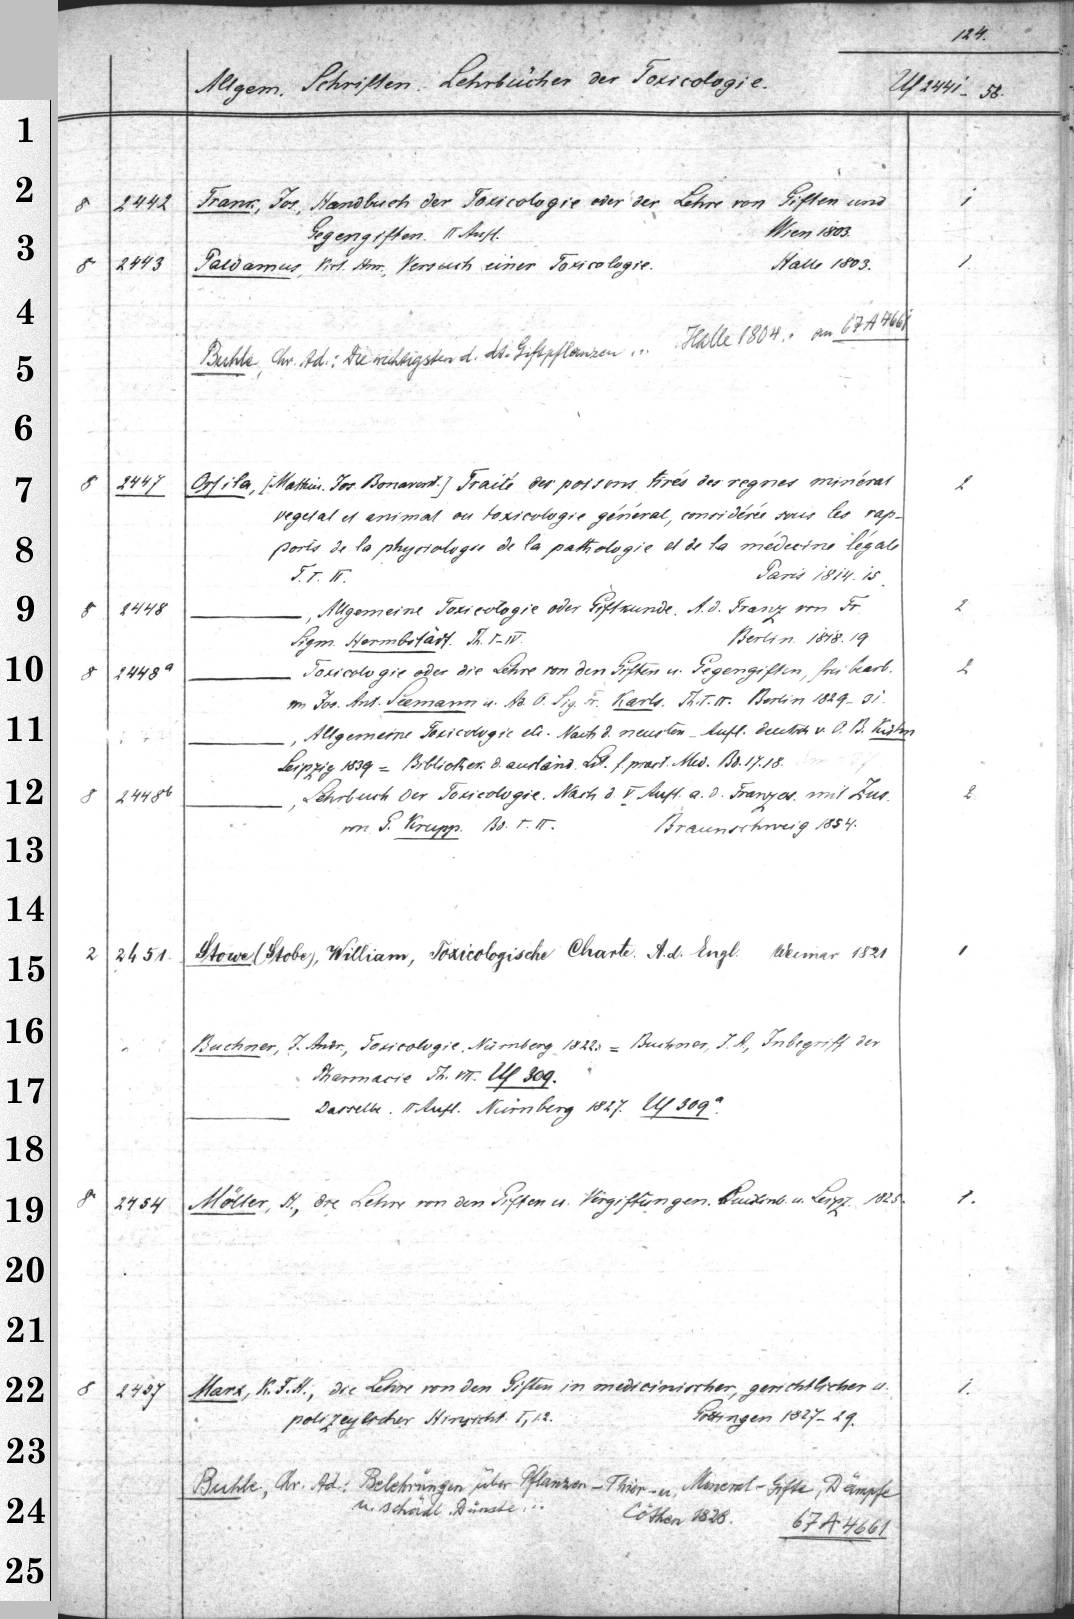 124.
Allgem. Schriften. Lehrbücher der Toxicologie. Uf 2441-58.
1
2
8 2442 Frank, Jos., Handbuch der Toxicologie oder der Lehre von Giften und 1
Gegengiften. II Aufl. Wien 1803.
3
8 2443 Paldamus, Vict. Hnr., Versuch einer Toxicologie. Halle 1803. 1.
4
Buhle, Chr. Ad.: Die wichtigsten d. dt. Giftpflanzen ... Halle 1804. an 67 A 4661
5
6
7
8 2447 Orfila, [Mathieu. Jos. Bonavent.] Traité des poisons tirés des regnes minéral 2
vegetal et animal ou toxicologie général, considérée sous les rap-
8
ports de la physiologie de la pathologie et de la médecine légale
T. I. II. Paris 1814. 15.
9
8 2448 ———, Allgemeine Toxicologie oder Giftkunde. A. d. Franz von Fr. 2
Sigm. Hermbstädt. Th. I-IV. Berlin 1818. 19
10
8 2448a ——— Toxicologie oder die Lehre von den Giften u. Gegengiften, frei bearb. 2
von Jos. Ant. Seemann u. Ad. O. Sig. Fr. Karls. Th. I. II. Berlin 1829-31.
11
———, Allgemeine Toxicologie etc. Nach d. neusten Aufl. deutsch v. O. B. Kühn
Leipzig 1839 = Bibliothek d. ausländ. Lit. f. pract. Med. Bd. 17. 18.
12
8 2448b ———, Lehrbuch der Toxicologie. Nach d. V Aufl. a. d. Franzos. mit Zus. 2
von G. Krupp. Bd. I. II. Braunschweig 1854.
13
14
15
2 2451. Stowe (Stobe), William, Toxicologische Charte. A. d. Engl. Weimar 1821 1
16
Buchner, J. Andr., Toxicologie. Nürnberg 1822. = Buchner, J. A., Inbegriff der
17
Pharmacie Th. VII. Uf 309.
——— Dasselbe. II Aufl. Nürnberg 1827. Uf 309a.
18
19
8 2454 Möller, H., die Lehre von den Giften u. Vergiftungen. Quedlinb. u. Leipz. 1825. 1.
20
21
22
8 2457 Marx, K. F. H., die Lehre von den Giften in medicinischer, gerichtlicher u. 1.
polizeylicher Hinsicht. I, 1.2. Göttingen 1827-29.
23
Buhle, Chr. Ad.: Belehrungen über Pflanzen- Thier- u. Mineral-Gifte, Dämpfe
24
u. schädl. Dünste ... Cöthen 1828. 67 A 4661
25